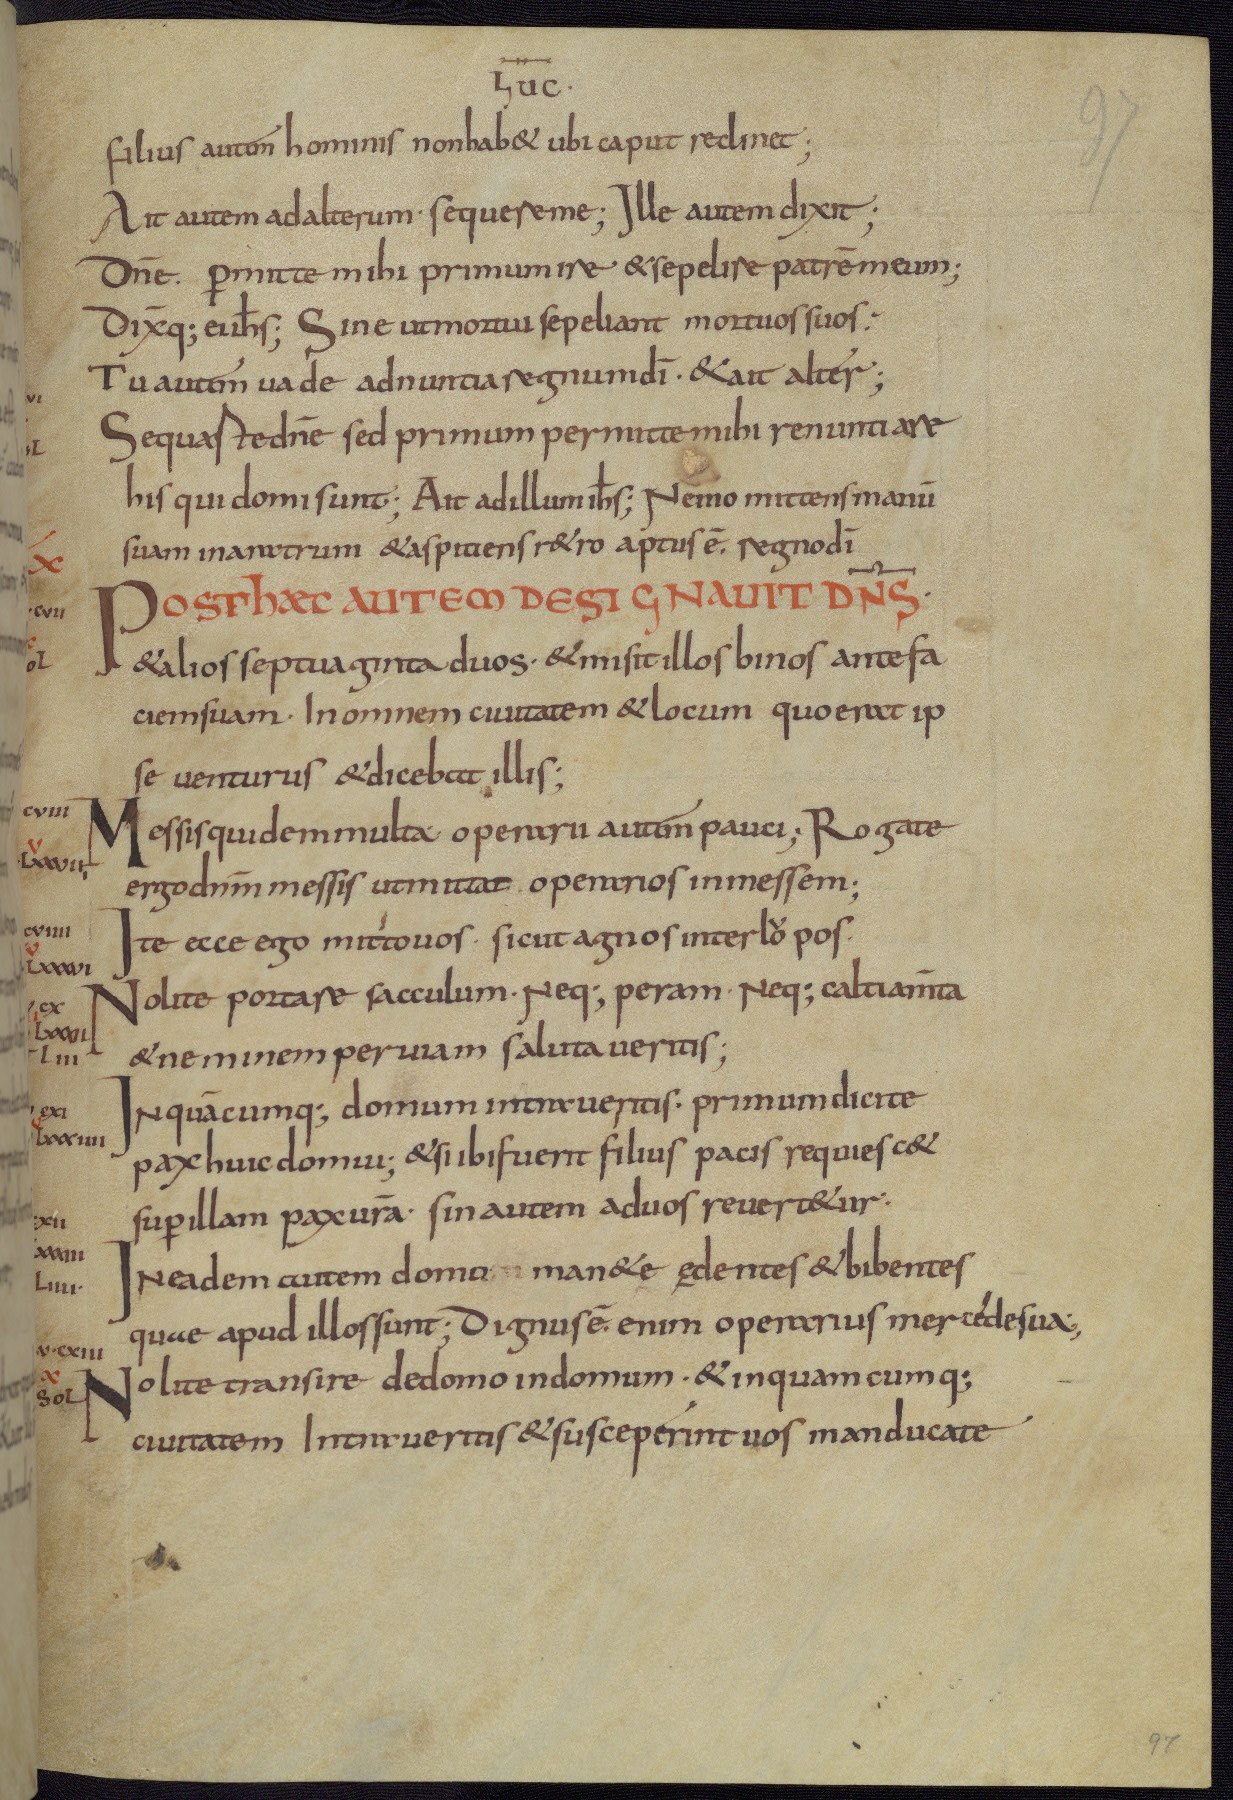 Luc·
97
filius autem̄ hominis non hab& ubi caput reclinet;
Ait autem ad alterum· sequere me; Ille autem dixit;
Dn̄e. ꝑmitte mihi primum ire & sepelire patrē meum;
Dix̄q; ei ih̄s; Sine ut mortui sepeliant mortuos suos:
Tu autm̄ uade adnuntia regnum dī· & ait alter;
Sequar te dn̄e sed primum permitte mihi renuntiare
his qui domi sunt; Ait ad illum ih̄s; Nemo mittens manū
suam in aratrum & aspiciens r&ro aptus ē. regno dī
POST haec AUTEM DESIGNAUIT DN̄S·
& alios septuaginta duos· & misit illos binos ante fa
ciem suam· In omnem ciuitatem & locum quo erat ip
se uenturus & dicebat illis;
cviii
Messis quidem multa operarii autm̄ pauci; Rogate
v
Lxxvii
ergo dnm̄ messis ut mittat operarios in messem;
cviiii
Ite ecce ego mitto uos· sicut agnos inter lupos·
v
Lxxxvi
Nolite portare sacculum· Neq; peram· Neq; caltiam̄ta
cx
Lxxxii
Liii
& neminem per uiam salutaueritis;
cxi
In quācumq; domum intraueritis· primum dicite
v
Lxxxiiii
pax huic domui; & si ibi fuerit filius pacis requiesc&
suꝑ illam pax urā· sin autem ad uos reuert&ur·
cxii
Lxxxiii
Liiii·
In eadem autem domu man&e edentes & bibentes
quae apud illos sunt; Dignus ē. enim operarius mercede sua;
cxiii
x
Sol
Nolite transire de domo in domum· & in quamcumq;
ciuitatem Intraueritis & susceperint uos manducate
97